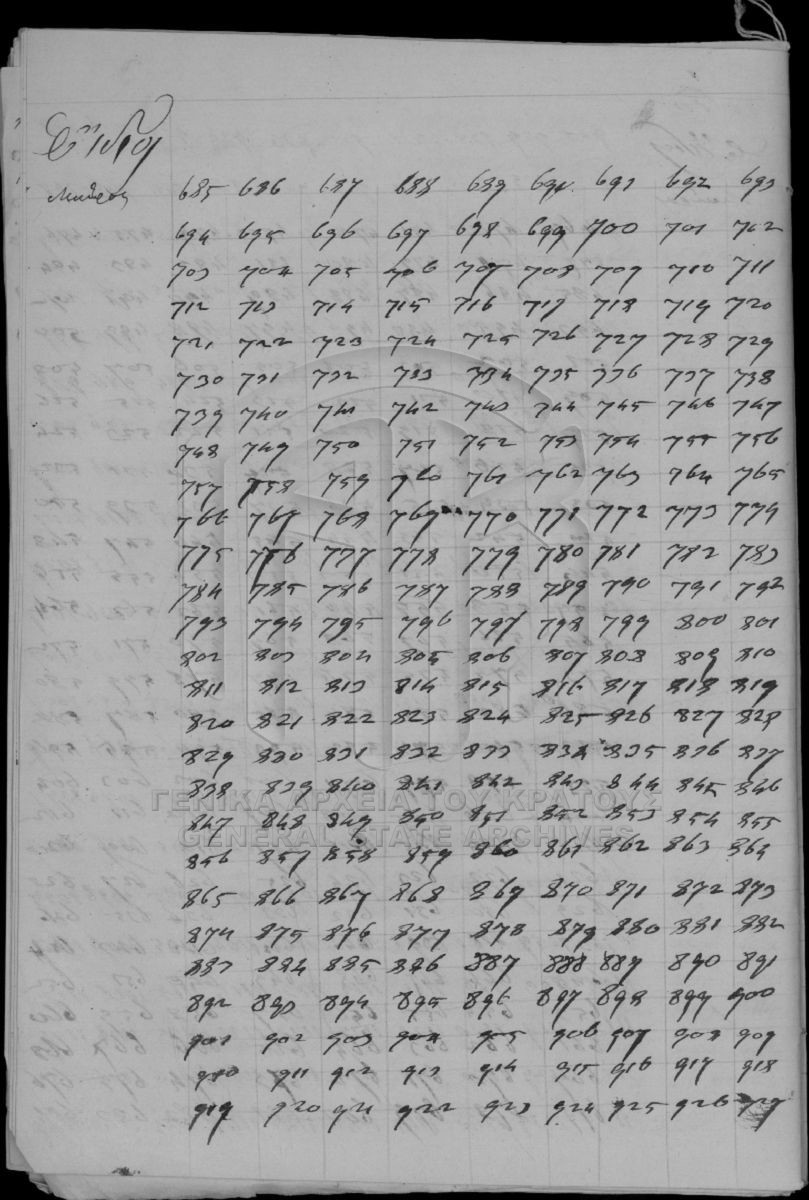 685 686 687 688 689 690 691 692 693
694 695 696 697 698 699 700 701 702
703 704 705 706 707 708 709 710 711
712 713 714 715 716 717 718 719 720
721 722 723 724 725 726 727 728 729
730 731 732 733 734 735 736 737 738
739 740 741 742 743 744 745 746 747
748 749 750 751 752 753 754 755 756
757 758 759 760 761 762 763 764 765
766 767 768 769 770 771 772 773 774
775 776 777 778 779 780 781 782 783
784 785 786 787 788 789 790 791 792
793 794 795 796 797 798 799 800 801
802 803 804 805 806 807 808 809 810
811 812 813 814 815 816 817 818 819
820 821 822 823 824 825 826 827 828
829 830 831 832 833 834 835 836 837
838 839 840 841 842 843 844 845 846
ΓΕΝΙΚΑ ΑΡΧΕΙΑ ΤΟΥ ΚΡΑΤΟΥΣ
847 848 849 850 851 852 853 854 855
GENERAL STATE ARCHIVES
856 857 858 859 860 861 862 863 864
865 866 867 868 869 870 871 872 873
874 875 876 877 878 879 880 881 882
883 884 885 886 887 888 889 890 891
892 893 894 895 896 897 898 899 900
901 902 903 904 905 906 907 908 909
910 911 912 913 914 915 916 917 918
919 920 921 922 923 924 925 926 927